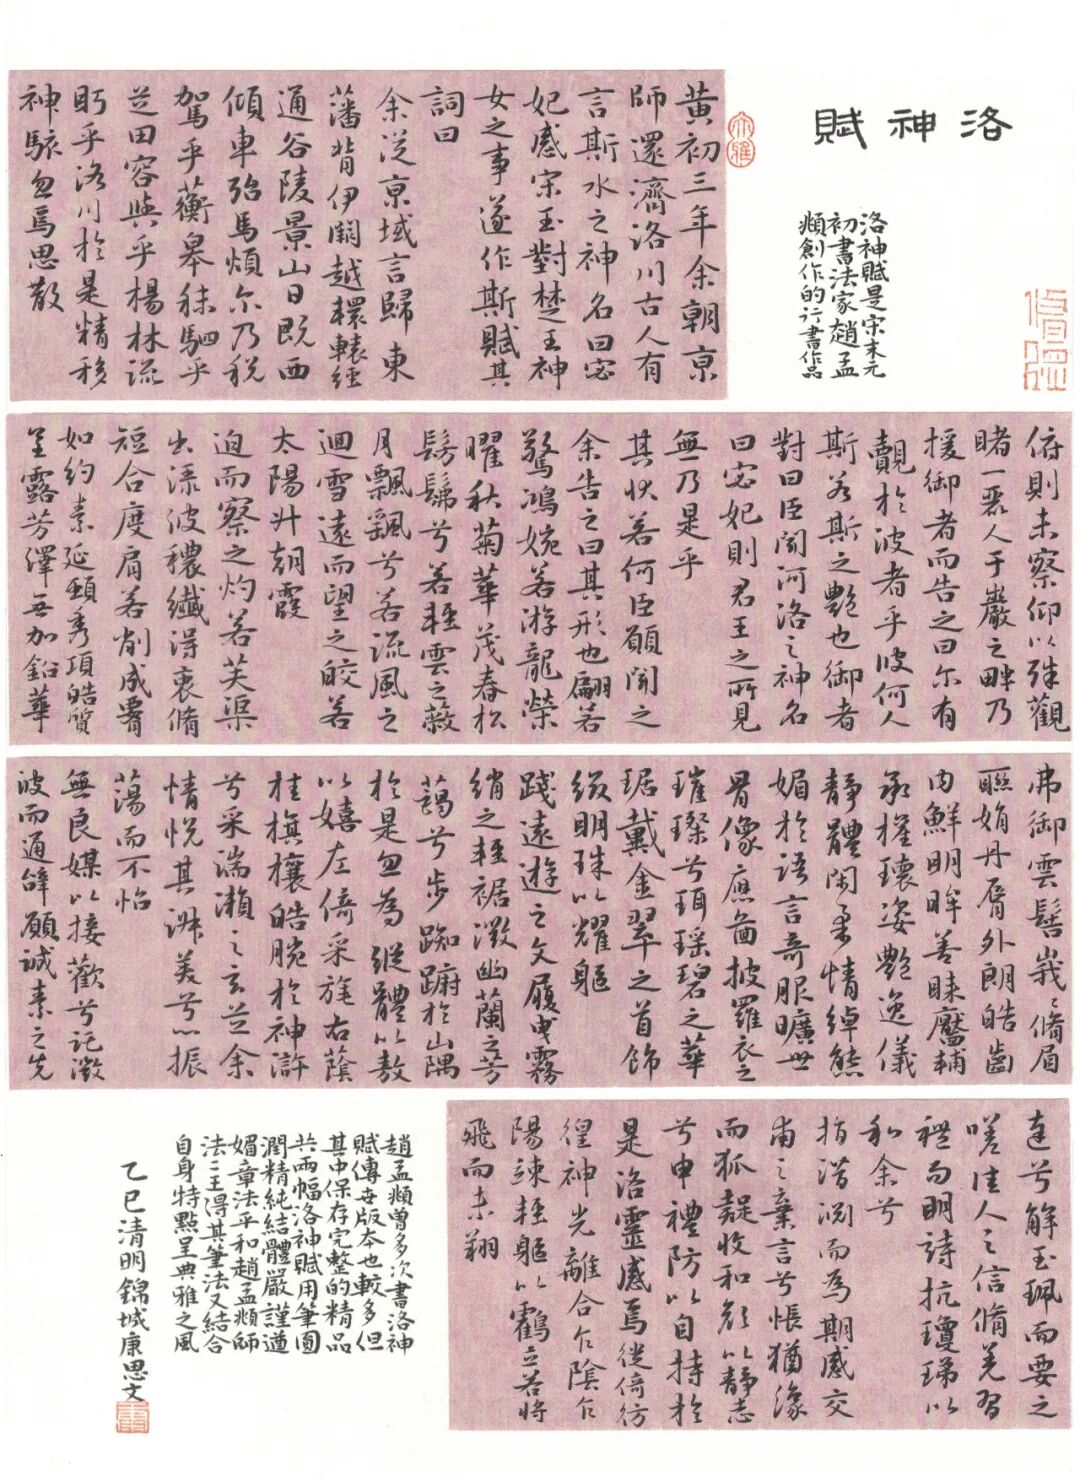 洛神賦
洛神賦是宋末元
初書法家趙孟
頫創作的行書作品
黄初三年余朝京
師還濟洛川古人有
言斯水之神名曰宓
妃感宋玉對楚王神
女之事遂作斯賦其
詞曰
余從京域言歸東
藩背伊闕越轘轅經
通谷陵景山日既西
傾車殆馬煩尔乃税
駕乎蘅皋秣駟乎
芝田容與乎楊林流
眄乎洛川於是精移
神駭忽焉思散
俯則未察仰以殊觀
睹一麗人于巖之畔乃
援御者而告之曰尔有
覿於彼者乎彼何人
斯若斯之艷也御者
對曰臣聞河洛之神名
曰宓妃則君王之所見
無乃是乎
其狀若何臣願聞之
余告之曰其形也翩若
驚鴻婉若游龍榮
曜秋菊華茂春松
髣髴兮若輕雲之蔽
月飄飖兮若流風之
迴雪遠而望之皎若
太陽升朝霞
迫而察之灼若芙渠
出淥波穠纖得衷脩
短合度肩若削成腰
如約素延頸秀項皓質
呈露芳澤無加鉛華
弗御雲髻峩々脩眉
聯娟丹脣外朗皓齒
内鮮明眸善睞靨輔
承權瓌姿艷逸儀
靜體閑柔情綽態
媚於語言奇服曠世
骨像應圖披羅衣之
璀璨兮珥瑶碧之華
琚戴金翠之首飾
綴明珠以耀軀
踐遠遊之文履曳霧
綃之輕裾微幽蘭之芳
藹兮步踟躕於山隅
於是忽焉縱體以敖
以嬉左倚采旄右蔭
桂旗攘皓腕於神滸
兮采湍瀨之玄芝余
情悦其淑美兮心振
蕩而不怡
無良媒以接歡兮託微
波而通辭願誠素之先
達兮解玉珮而要之
嗟佳人之信脩羌習
禮而明詩抗瓊珶以
和余兮
指潛淵而為期感交
甫之棄言兮悵猶豫
而狐疑收和顏以靜志
兮申禮防以自持於
是洛靈感焉徙倚彷
徨神光離合乍陰乍
陽竦輕軀以鶴立若將
飛而未翔
趙孟頫曾多次書洛神
賦傳世版本也較多但
其中保存完整的精品
共兩幅洛神賦用筆圓
潤精純結體嚴謹遒
媚章法平和趙孟頫師
法二王得其筆法又結合
自身特點呈典雅之風
乙巳清明錦城康思文